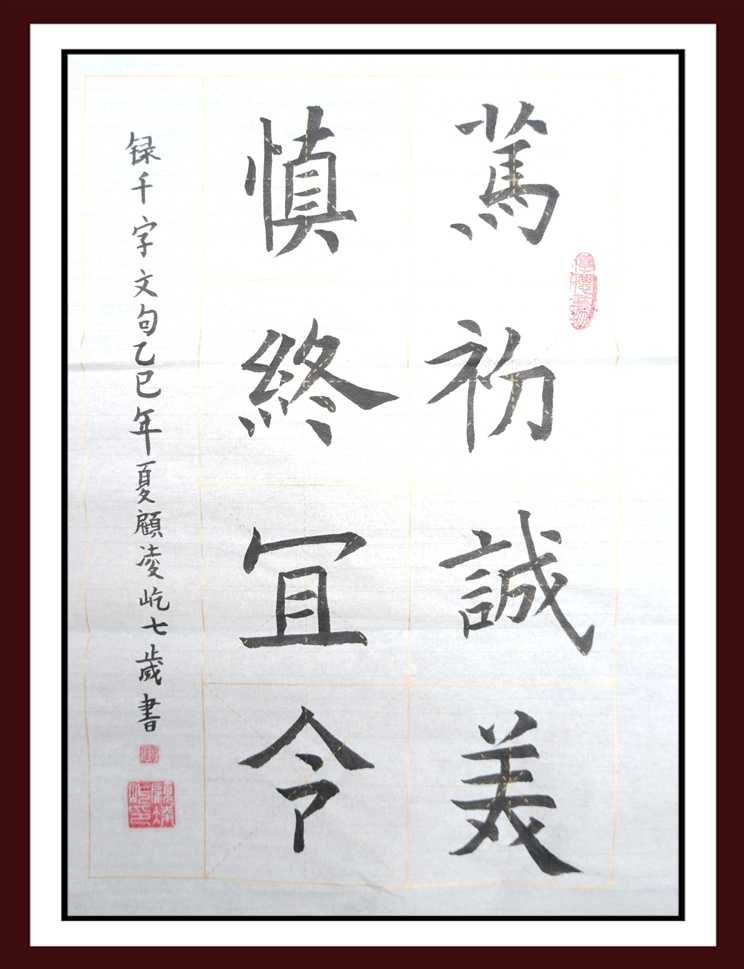 篤初誠美
慎終冝令
録千字文句乙巳年夏顧凌屹七歲書